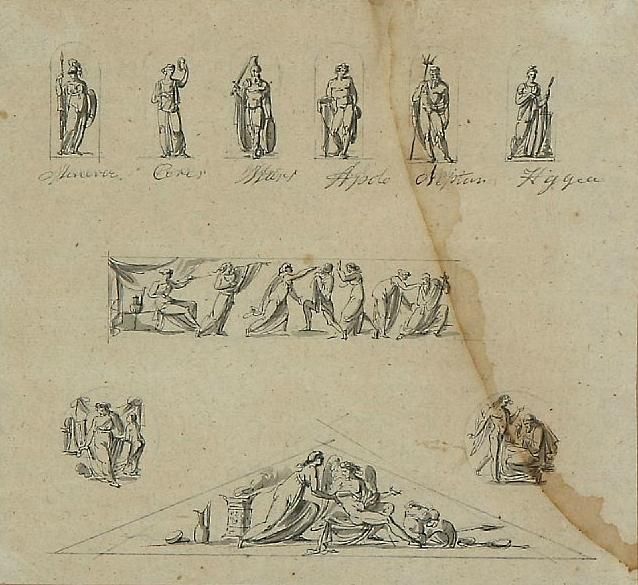 Minerva. Ceres Mars Apolo Neptun Hyggea